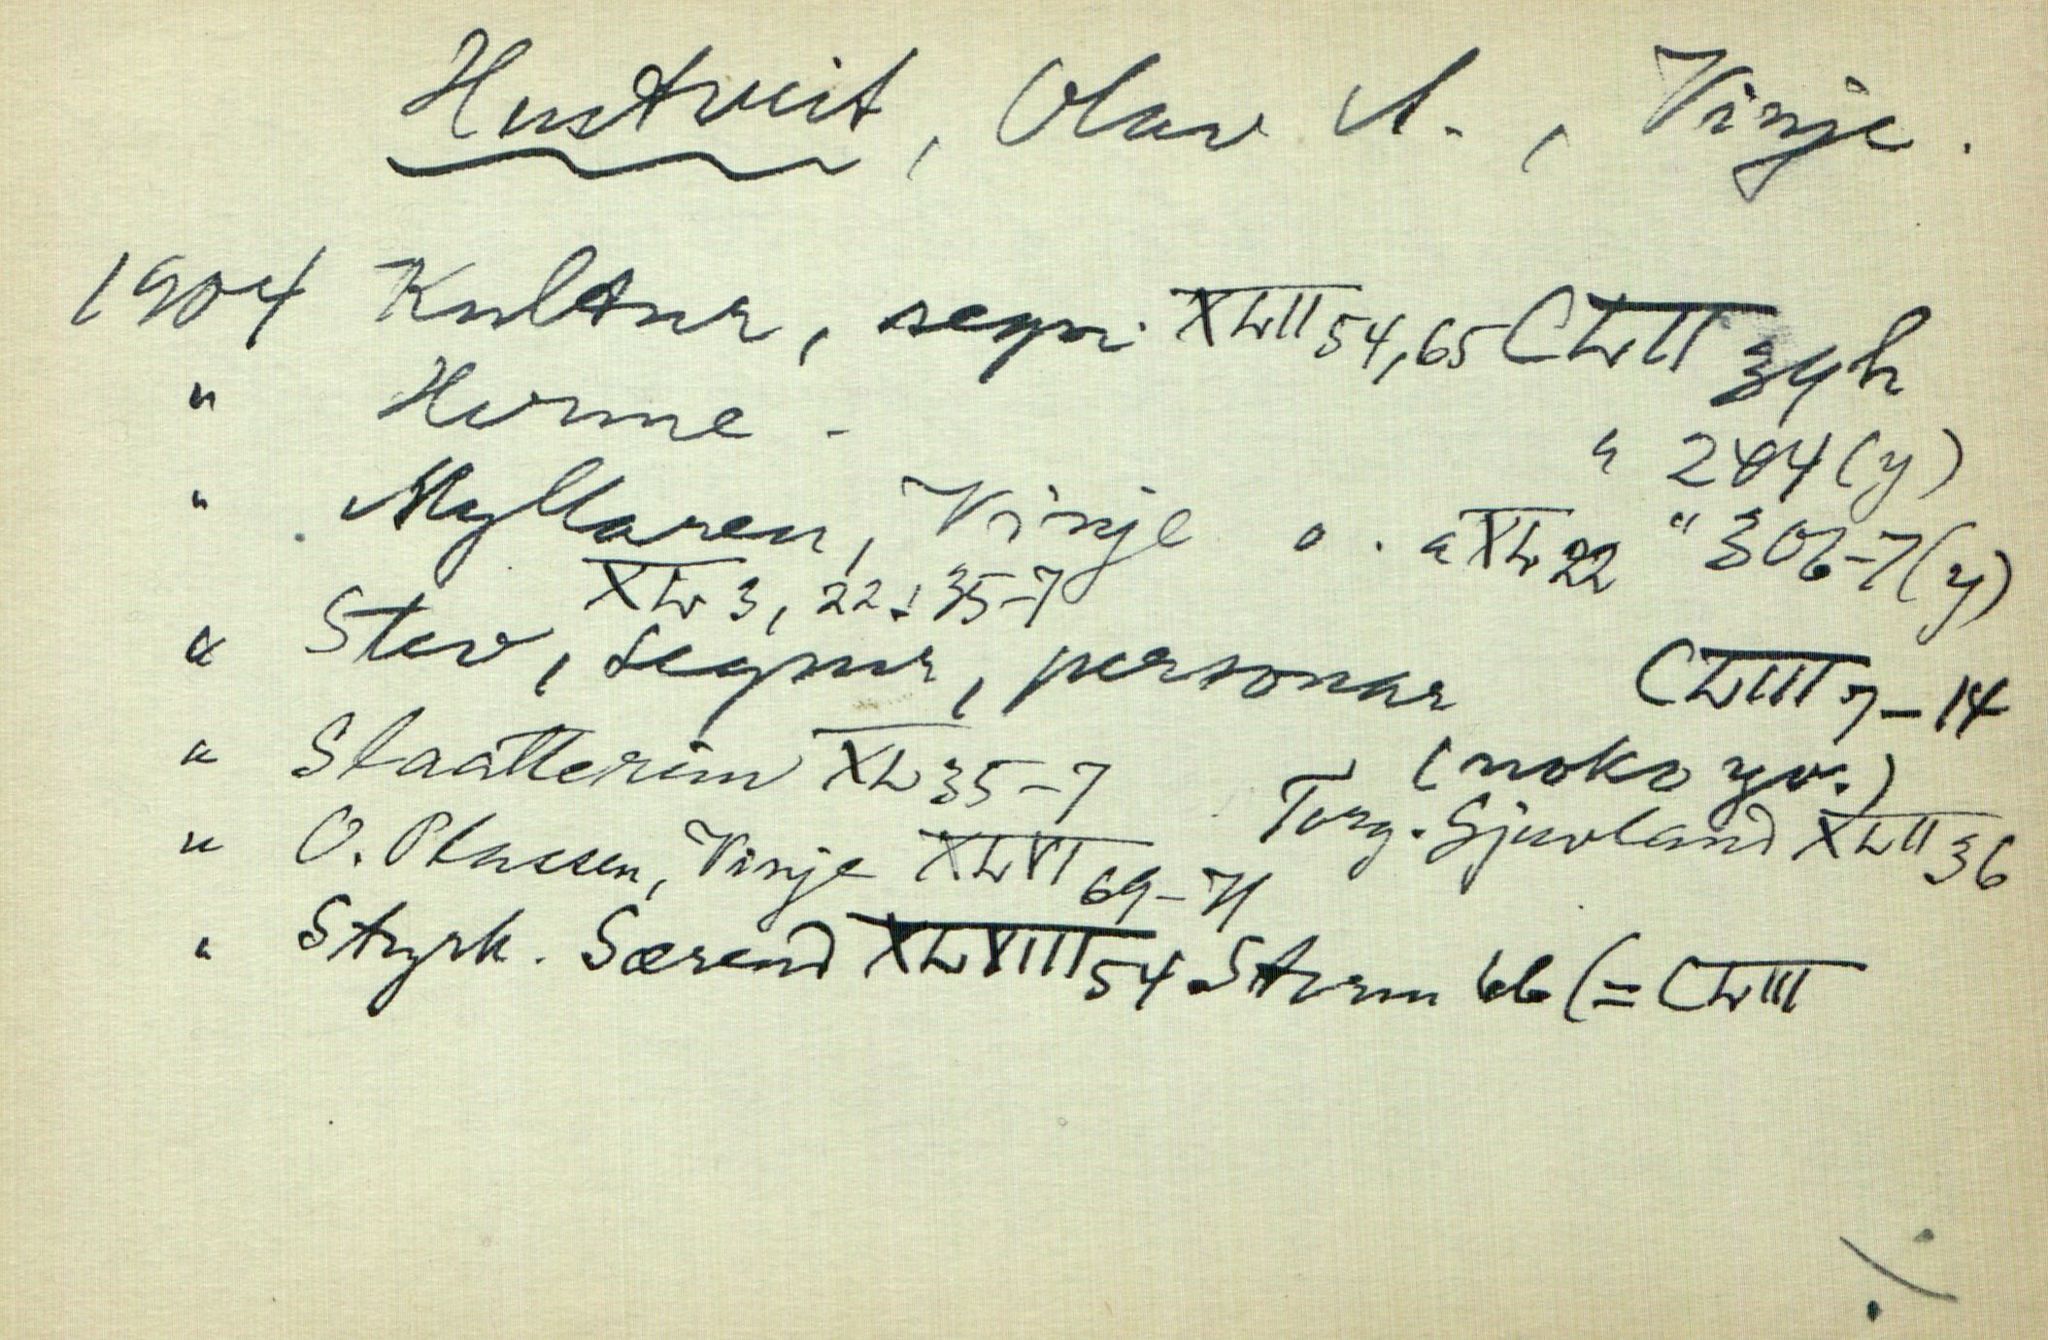 Hustveit, Olav A., Vinje.
1904 Kultur, segn. XLII 54, 65 CLII 34 h
" Horme - " 204 (y)
" Myllaren, Vinje o. a XL 22 " 306-7 (y)
XL 3, 22, 35-7
" Stev, segner, personar CLIII 7-14
(noko yv.)
" Slaatterim XL 35-7 Torg. Gjuvland XLII 36
" O. Plassen, Vinje XLVI 69-71
" Styrk. Særend XLVIII 54 Storm 66 (= CLIII